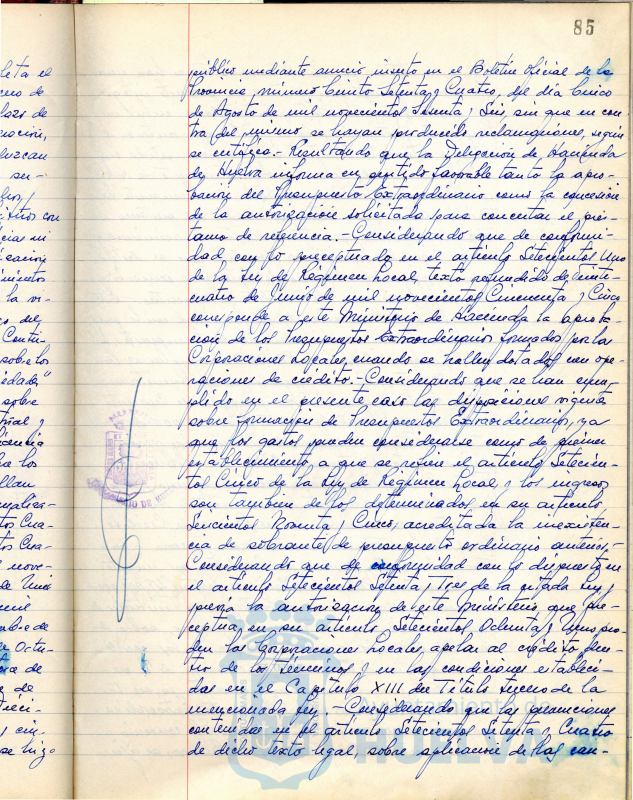 85
público mediante anuncio inserto en el Boletín Oficial de la
Provincia, número Ciento Setenta y Cuatro, del día Cinco
de Agosto de mil novecientos Sesenta y Seis, sin que en con-
tra del mismo se hayan producido reclamaciones, según
se certifica.- Resultando que la Delegación de Hacienda
de Huelva informa en sentido favorable tanto la apro-
bación del Presupuesto Extraordinario como la concesión
de la autorización solicitada para concertar el prés-
tamo de referencia.- Considerando que de conformi-
dad con lo preceptuado en el artículo Setecientos Uno
de la Ley de Régimen Local, texto refundido de Veinte-
cuatro de Junio de mil novecientos Cincuenta y Cinco
corresponde a este Ministerio de Hacienda la aproba-
ción de los Presupuestos Extraordinarios formados por las
Corporaciones Locales, cuando se hallen dotados con ope-
raciones de crédito.- Considerando que se han cum-
plido en el presente caso las disposiciones vigentes
sobre formación de Presupuestos Extraordinarios, ya
que los gastos pueden considerarse como de primer
establecimiento a que se refiere el artículo Setecien-
tos Cinco de la Ley de Régimen Local y los ingresos
son también de los determinados en su artículo
Seiscientos Noventa y Cinco, acreditada la inexisten-
cia de sobrante de presupuesto ordinario anterior.-
Considerando que de conformidad con lo dispuesto en
el artículo Setecientos Setenta y Tres de la citada Ley
previa la autorización de este Ministerio que pre-
ceptúa en su artículo Setecientos Ochenta y Uno pue-
den las Corporaciones Locales apelar al crédito den-
tro de los términos y en las condiciones estableci-
das en el Capítulo XIII del Título tercero de la
mencionada Ley.- Considerando que las prevenciones
contenidas en el artículo Setecientos Setenta y Cuatro
de dicho texto legal, sobre aplicación de las can-
HUELVA